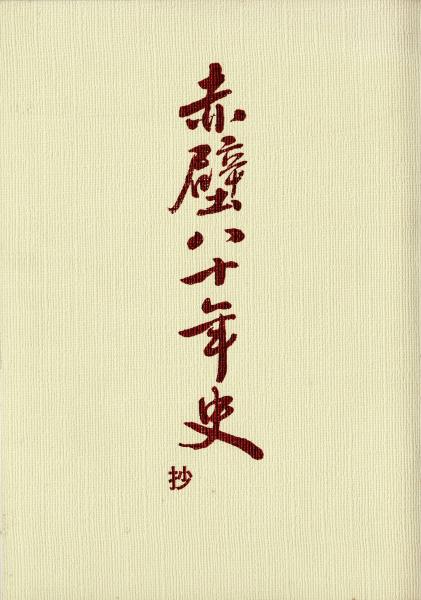 赤壁八十年史
抄